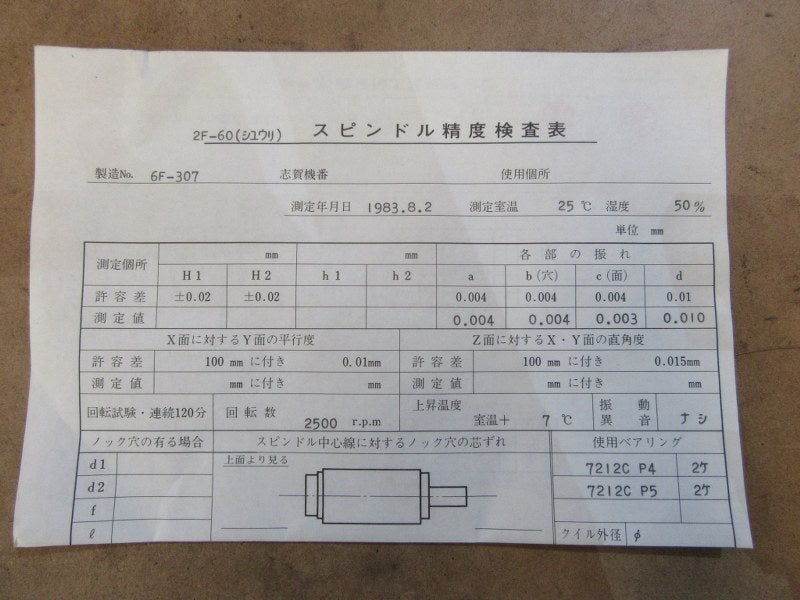 2F-60(シユウリ) スピンドル精度検査表
製造No. 6F-307 志賀機番 使用個所
測定年月日 1983.8.2 測定室温 25 ℃ 湿度 50 %
単位 mm
測定個所 mm mm 各部の振れ
H1 H2 h1 h2 a b(穴) c(面) d
許容差 ±0.02 ±0.02 0.004 0.004 0.004 0.01
測定値 0.004 0.004 0.003 0.010
X面に対するY面の平行度 Z面に対するX・Y面の直角度
許容差 100 mm に付き 0.01mm 許容差 100 mm に付き 0.015mm
測定値 mm に付き mm 測定値 mm に付き mm
回転試験・連続120分 回転数 2500 r.p.m 上昇温度 室温+ 7 ℃ 振動異音 ナシ
ノック穴の有る場合 スピンドル中心線に対するノック穴の芯ずれ 使用ベアリング
d1 上面より見る 7212C P4 2ケ
d2 7212C P5 2ケ
f
ℓ クイル外径 φ